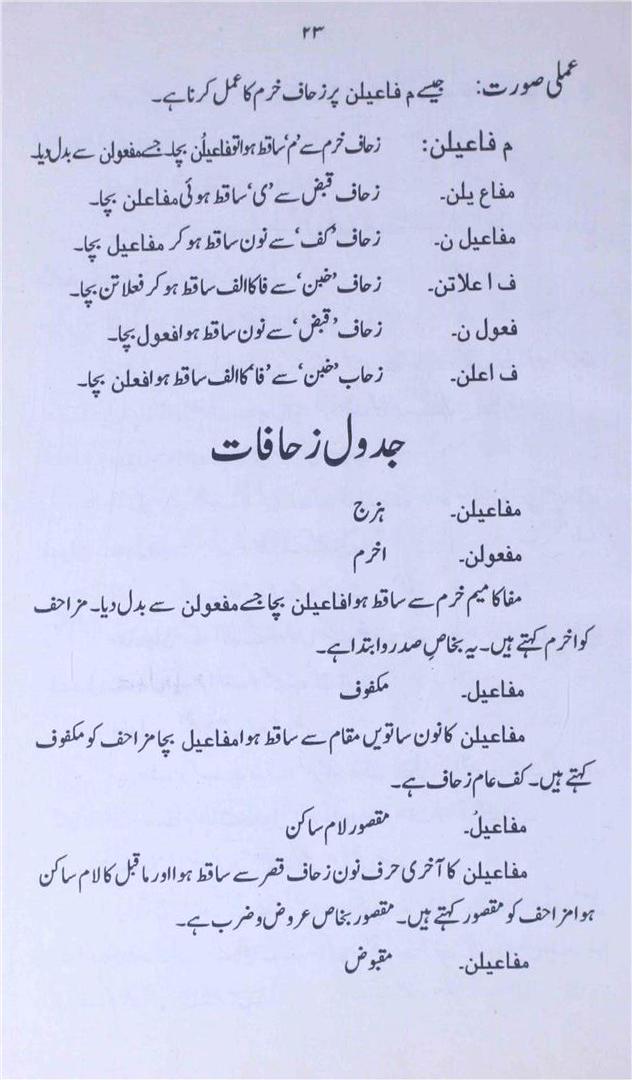 ۲۳
عملی صورت: جیسے م فاعیلن پر زحاف خرم کا عمل کرنا ہے۔
م فاعیلن: زحاف خرم سے ’م‘ ساقط ہوا تو فاعیلُن بچا۔ جسے مفعولن سے بدل دیا۔
مفاع یلن۔ زحاف قبض سے ’ی‘ ساقط ہوئی مفاعلن بچا۔
مفاعیل ن۔ زحاف ’کف‘ سے نون ساقط ہو کر مفاعیل بچا۔
ف ا علاتن۔ زحاف ’خبن‘ سے فا کا الف ساقط ہو کر فعلاتن بچا۔
فعول ن۔ زحاف ’قبض‘ سے نون ساقط ہوا فعول بچا۔
ف اعلن۔ زحاب ’خبن‘ سے ’فا‘ کا الف ساقط ہوا فعلن بچا۔
جدول زحافات
مفاعیلن۔ ہزج
مفعولن۔ اخرم
مفا کا میم خرم سے ساقط ہوا فاعیلن بچا جسے مفعولن سے بدل دیا۔ مزاحف
کو اخرم کہتے ہیں۔ یہ بخاصِ صدر و ابتدا ہے۔
مفاعیل۔ مکفوف
مفاعیلن کا نون ساتویں مقام سے ساقط ہوا مفاعیل بچا مزاحف کو مکفوف
کہتے ہیں۔ کف عام زحاف ہے۔
مفاعیلْ۔ مقصور لام ساکن
مفاعیلن کا آخری حرف نون زحاف قصر سے ساقط ہوا اور ماقبل کا لام ساکن
ہوا مزاحف کو مقصور کہتے ہیں۔ مقصور بخاص عروض و ضرب ہے۔
مفاعیلن۔ مقبوض